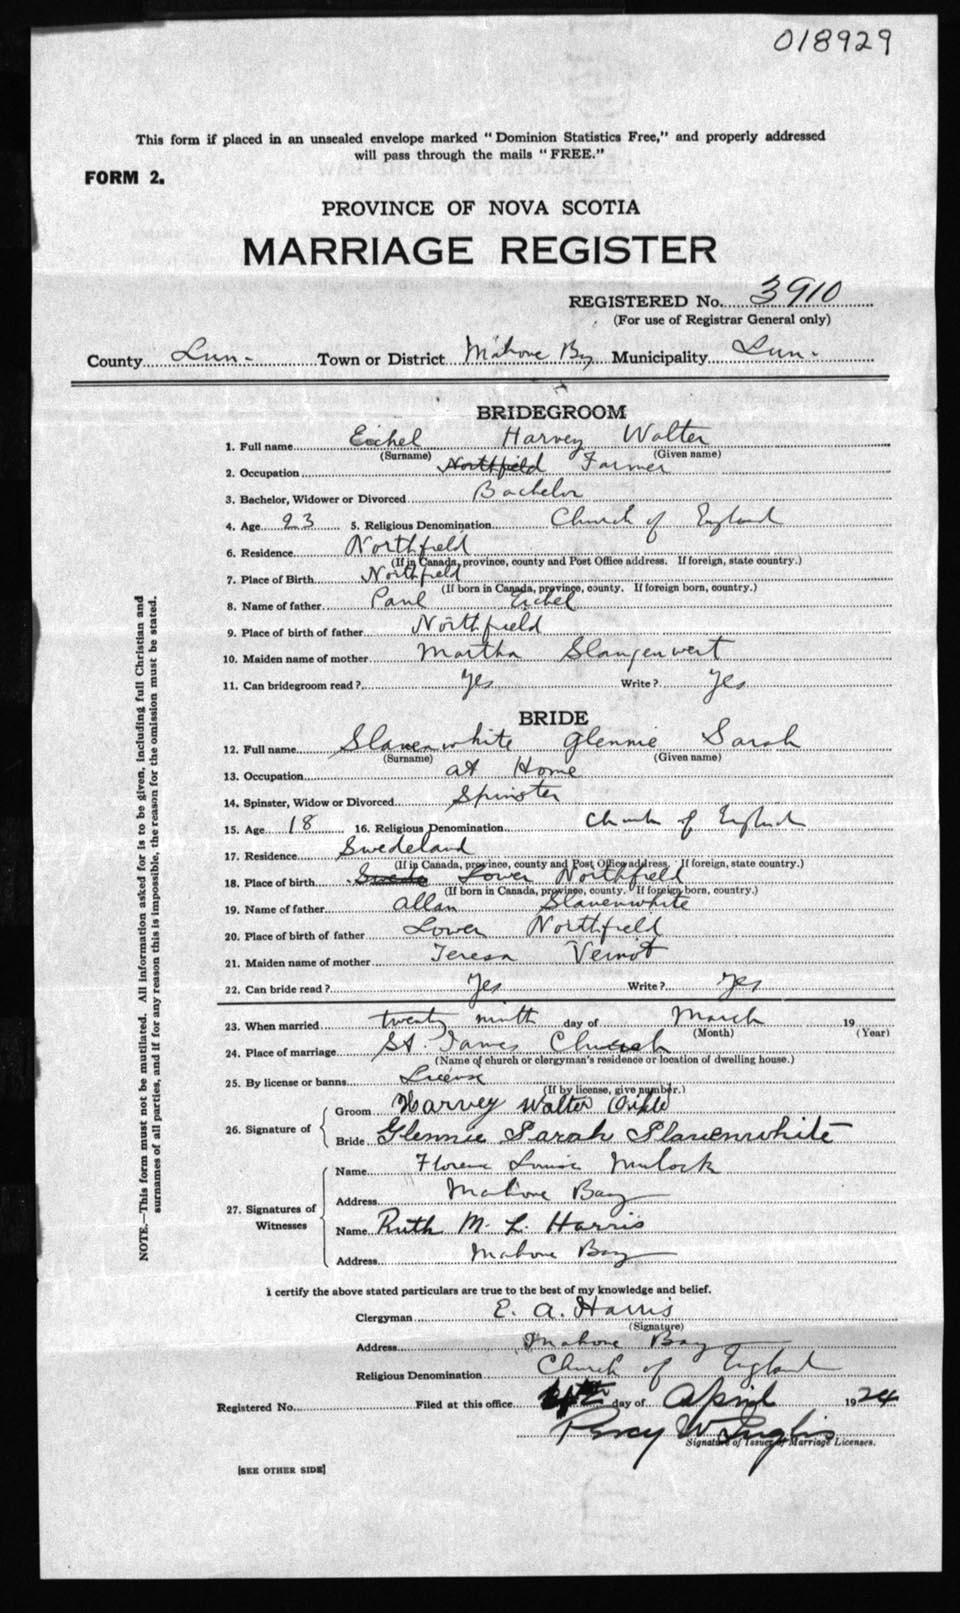 018929
This form if placed in an unsealed envelope marked "Dominion Statistics Free," and properly addressed
will pass through the mails "FREE."
FORM 2.
PROVINCE OF NOVA SCOTIA
MARRIAGE REGISTER
REGISTERED No. 3910
(For use of Registrar General only)
County Lun. Town or District Mahone Bay Municipality Lun.
BRIDEGROOM
1. Full name Eichel Harvey Walter
(Surname) (Given name)
2. Occupation Northfield Farmer
3. Bachelor, Widower or Divorced Bachelor
4. Age 23 5. Religious Denomination Church of England
6. Residence Northfield
(If in Canada, province, county and Post Office address. If foreign, state country.)
7. Place of Birth Northfield
(If born in Canada, province, county. If foreign born, country.)
8. Name of father Paul Eichel
9. Place of birth of father Northfield
10. Maiden name of mother Martha Slangenwert
11. Can bridegroom read? Yes Write? Yes
BRIDE
12. Full name Slauenwhite Glennie Sarah
(Surname) (Given name)
13. Occupation at Home
14. Spinster, Widow or Divorced Spinster
15. Age 18 16. Religious Denomination Church of England
17. Residence Swedeland
(If in Canada, province, county and Post Office address. If foreign, state country.)
18. Place of birth Swede Lower Northfield
(If born in Canada, province, county. If foreign born, country.)
19. Name of father Allan Slauenwhite
20. Place of birth of father Lower Northfield
21. Maiden name of mother Teresa Veinot
22. Can bride read? Yes Write? Yes
23. When married twenty ninth day of March 19
(Month) (Year)
24. Place of marriage St James Church
(Name of church or clergyman's residence or location of dwelling house.)
25. By license or banns License
(If by license, give number.)
26. Signature of
Groom Harvey Walter
Bride Glennie Sarah Slauenwhite
27. Signatures of Witnesses
Name Florence Louise Mulock
Address Mahone Bay
Name Ruth M. L. Harris
Address Mahone Bay
I certify the above stated particulars are true to the best of my knowledge and belief.
Clergyman E. A. Harris
(Signature)
Address Mahone Bay
Religious Denomination Church of England
Registered No. Filed at this office day of April 1924
Percy W Inglis
Signature of Issuer of Marriage Licenses.
[SEE OTHER SIDE]
NOTE.—This form must not be mutilated. All information asked for is to be given, including full Christian and
surnames of all parties, and if for any reason this is impossible, the reason for the omission must be stated.